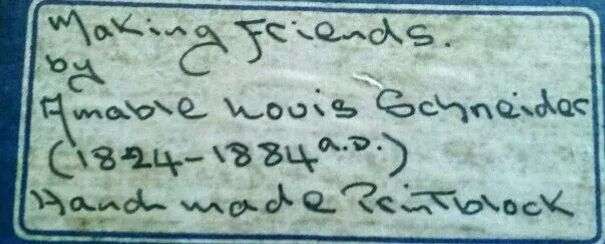 Making Friends.
by
Amable Louis Schneider
(1824-1884 A.D.)
Hand made Printblock